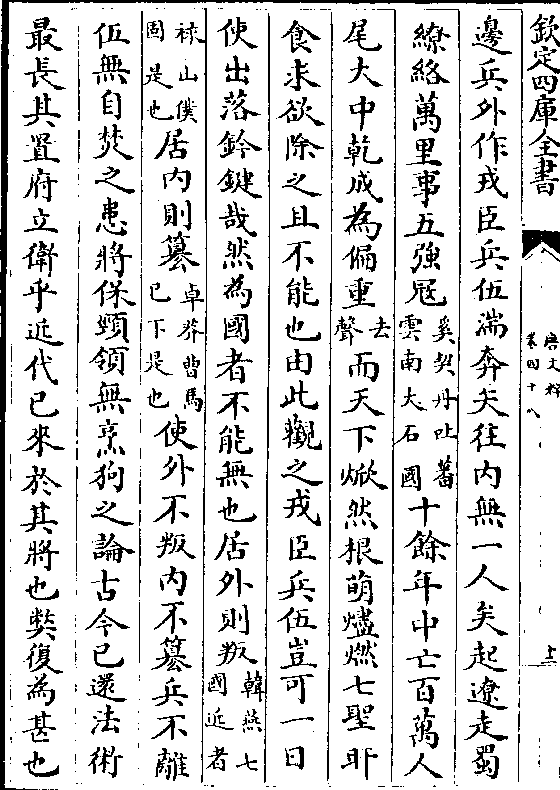 欽定四庫全書
唐文粹
卷四十八
十三
邊兵外作戎臣兵伍湍奔矢往内無一人矣起遼走蜀
繚絡萬里事五強冦奚契丹吐蕃雲南大石國十餘年中亡百萬人
尾大中乾成為偏重去聲而天下掀然根萌燼燃七聖旰
食求欲除之且不能也由此觀之戎臣兵伍豈可一日
使出落鈐鍵哉然為國者不能無也居外則叛韓燕七國近者
祿山僕固是也居内則簒卓莽曹馬已下是也使外不叛内不簒兵不離
伍無自焚之患將保頸領無烹狗之論古今已還法術
最長其置府立衛乎近代已來於其將也弊復為甚也